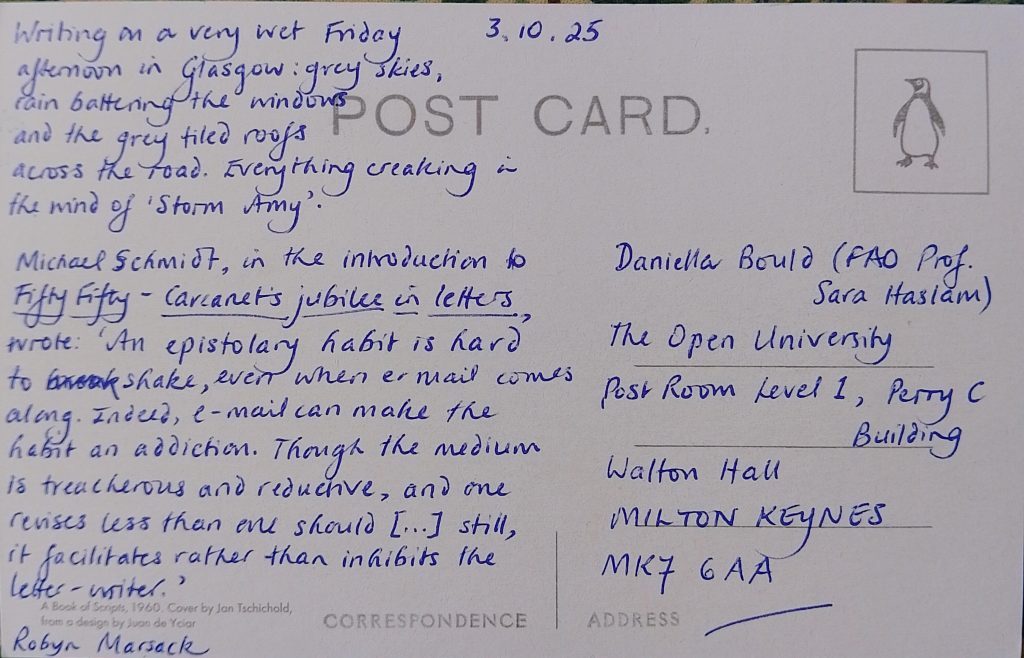 Writing on a very wet Friday 3.10.25
afternoon in Glasgow: grey skies,
rain battering the windows
and the grey tiled roofs
across the road. Everything creaking in
the wind of 'Storm Amy'.
POST CARD.
Michael Schmidt, in the introduction to
Fifty Fifty - Carcanet's jubilee in letters,
wrote: 'An epistolary habit is hard
to break shake, even when e-mail comes
along. Indeed, e-mail can make the
habit an addiction. Though the medium
is treacherous and reductive, and one
revises less than one should [...] still,
it facilitates rather than inhibits the
letter-writer.'
A Book of Scripts, 1960. Cover by Jan Tschichold,
from a design by Juan de Yciar
Robyn Marsack
CORRESPONDENCE
Daniella Bould (FAO Prof.
Sara Haslam)
The Open University
Post Room Level 1, Perry C
Building
Walton Hall
MILTON KEYNES
MK7 6AA
ADDRESS